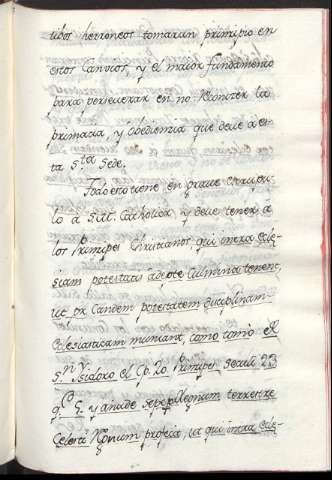 tidos herroneos tomaran principio en
estos Canvios, y el maior fundamento
para perseverar en no Remitir la
primacia, y obediencia que deve a es-
ta S.ta Sede.
Todo esto tiene en grave escrupu-
lo à S. M. Catholica, y deve tener à
los Principes Christianos, qui intra Ecle-
siam potestatis adepte Culmina tenent,
ut per eandem potestatem disciplinam
Eclesiasticam muniant, como tomò el
S.n Isidoro el Cp. 20 Principes Seculi 23
q. 5. y añade sepe per Regnum terrestre
Celeste Regnum proficit, ut qui intra Ecle-